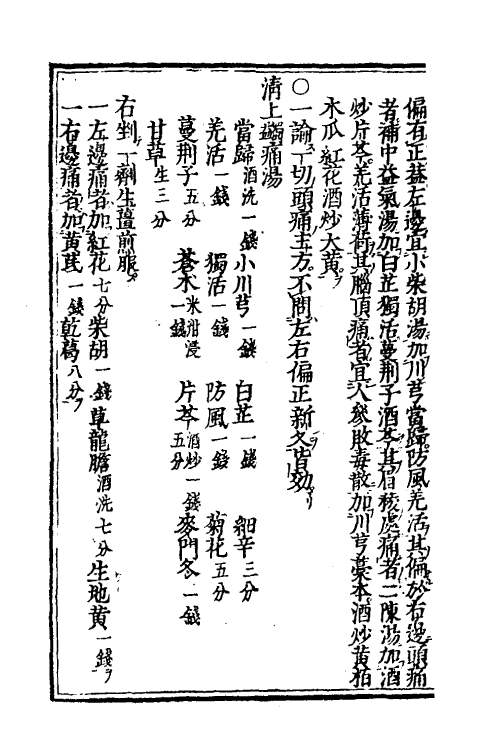 偏右正甚左邊宜小柴胡湯加川芎當歸防風羌活其偏於右邊頭痛
者補中益氣湯加白芷獨活蔓荆子酒芩其眉稜處痛者二陳湯加酒
炒片芩羌活薄荷其腦頂痛者宜人參敗毒散加川芎藁本酒炒黃柏
木瓜紅花酒炒大黃
〇一論一切頭痛主方不問左右偏正新久皆効
清上蠲痛湯
當歸酒洗一錢 小川芎一錢 白芷一錢 細辛三分
羌活一錢 獨活一錢 防風一錢 菊花五分
蔓荆子五分 蒼朮米泔浸一錢 片芩酒炒一錢五分 麥門冬一錢
甘草生三分
右剉一劑生薑煎服
一左邊痛者加紅花七分柴胡一錢草龍膽酒洗七分生地黃一錢
一右邊痛者加黃芪一錢乾葛八分